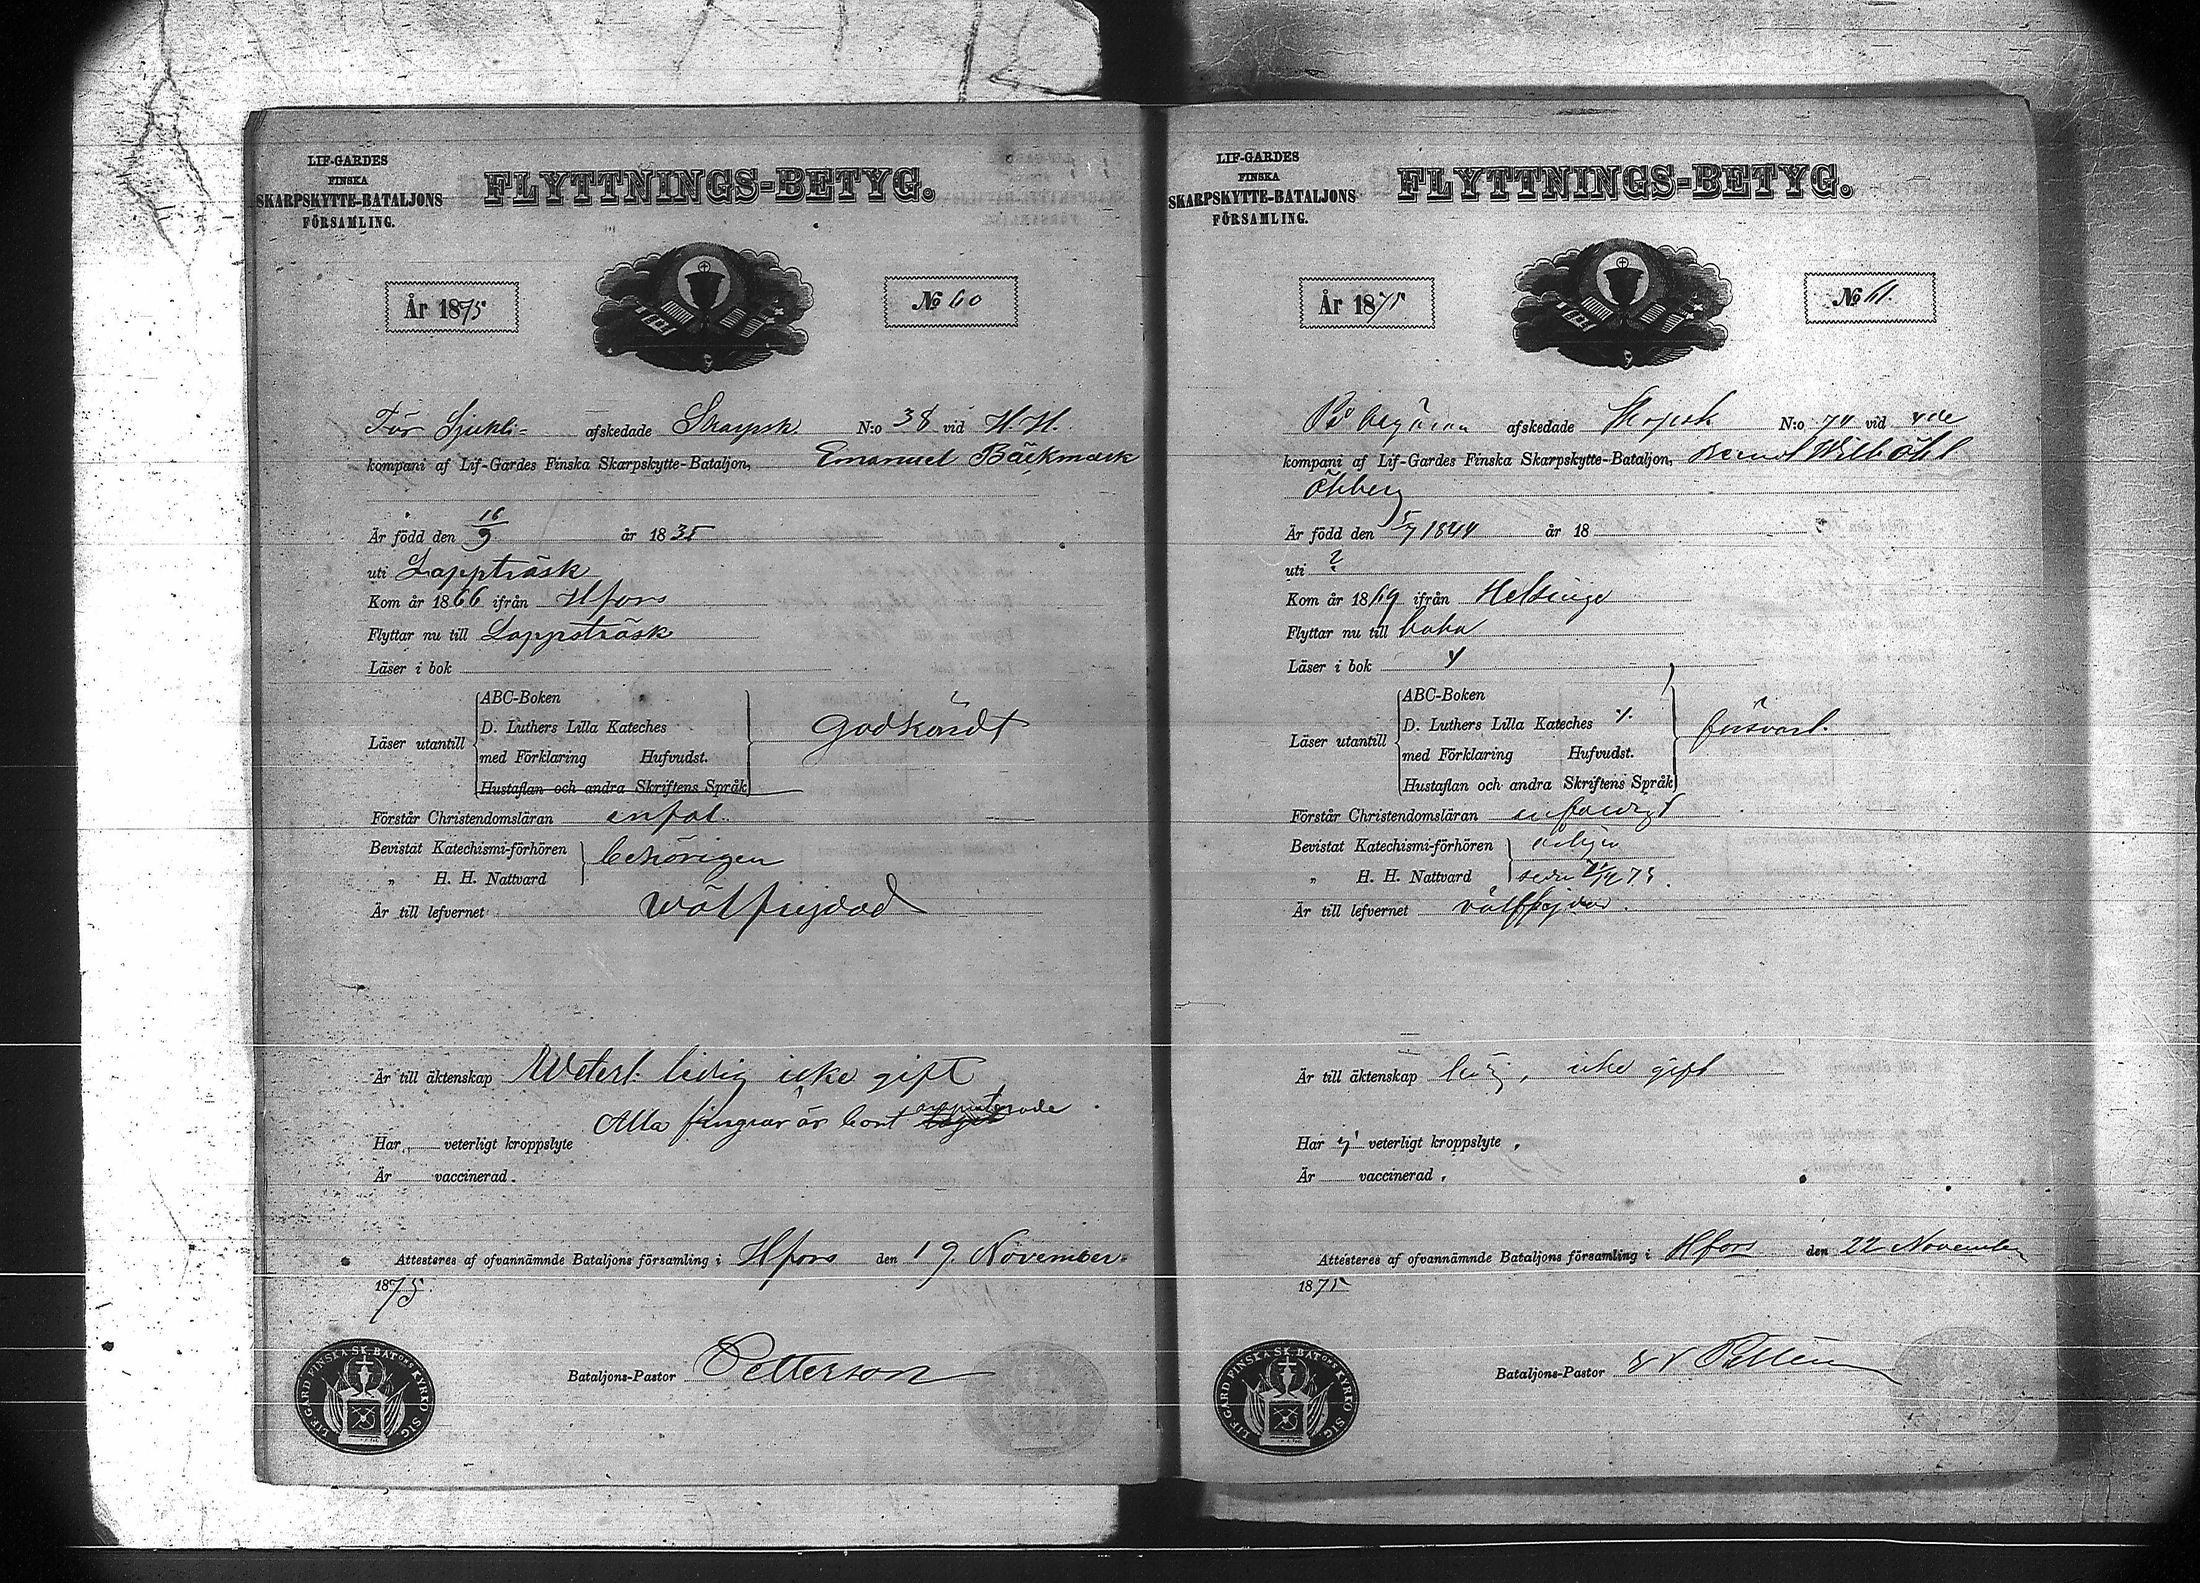 LIF-GARDES
FINSKA
SKARPSKYTTE-BATALJONS
FÖRSAMLING.
FLYTTNINGS-BETYG.
År 1875
№ 60
För Sjukli= afskedade Skarpsk. N:o 38 vid H. H.
kompani af Lif-Gardes Finska Skarpskytte-Bataljon, Emanuel Bäckmark
Är född den 16/9 år 1835
uti Lappträsk
Kom år 1866 ifrån Hfors
Flyttar nu till Lappträsk
Läser i bok
Läser utantill
ABC-Boken
D. Luthers Lilla Kateches
med Förklaring Hufvudst.
Hustaflan och andra Skriftens Språk
godkändt
Förstår Christendomsläran enfal.
Bevistat Katechismi-förhören
„ H. H. Nattvard
behörigen
Är till lefvernet wälfrejdad
Är till äktenskap Weterl. ledig icke gift
Alla fingrar är bort
Har veterligt kroppslyte
Är vaccinerad.
Attesteres af ofvannämnde Bataljons församling i Hfors den 19. November
1875.
Bataljons-Pastor Petterson
LIF-GARD FINSKA SK. BATONS KYRKO SIG.
LIF-GARDES
FINSKA
SKARPSKYTTE-BATALJONS
FÖRSAMLING.
FLYTTNINGS-BETYG.
År 1875
№ 61.
På begäran afskedade Skarpsk N:o 74 vid 4de
kompani af Lif-Gardes Finska Skarpskytte-Bataljon,
Öhberg
Är född den 5/7 1844 år 18
uti ?
Kom år 1869 ifrån Helsinge
Flyttar nu till
Läser i bok
Läser utantill
ABC-Boken
D. Luthers Lilla Kateches
med Förklaring Hufvudst.
Hustaflan och andra Skriftens Språk
försvarl.
Förstår Christendomsläran enfaldigt
Bevistat Katechismi-förhören
„ H. H. Nattvard
Är till lefvernet välfrejdad
Är till äktenskap ledig, icke gift
Har ej veterligt kroppslyte.
Är vaccinerad.
Attesteres af ofvannämnde Bataljons församling i Hfors den 22 November
1875
Bataljons-Pastor
LIF-GARD FINSKA SK. BATONS KYRKO SIG.